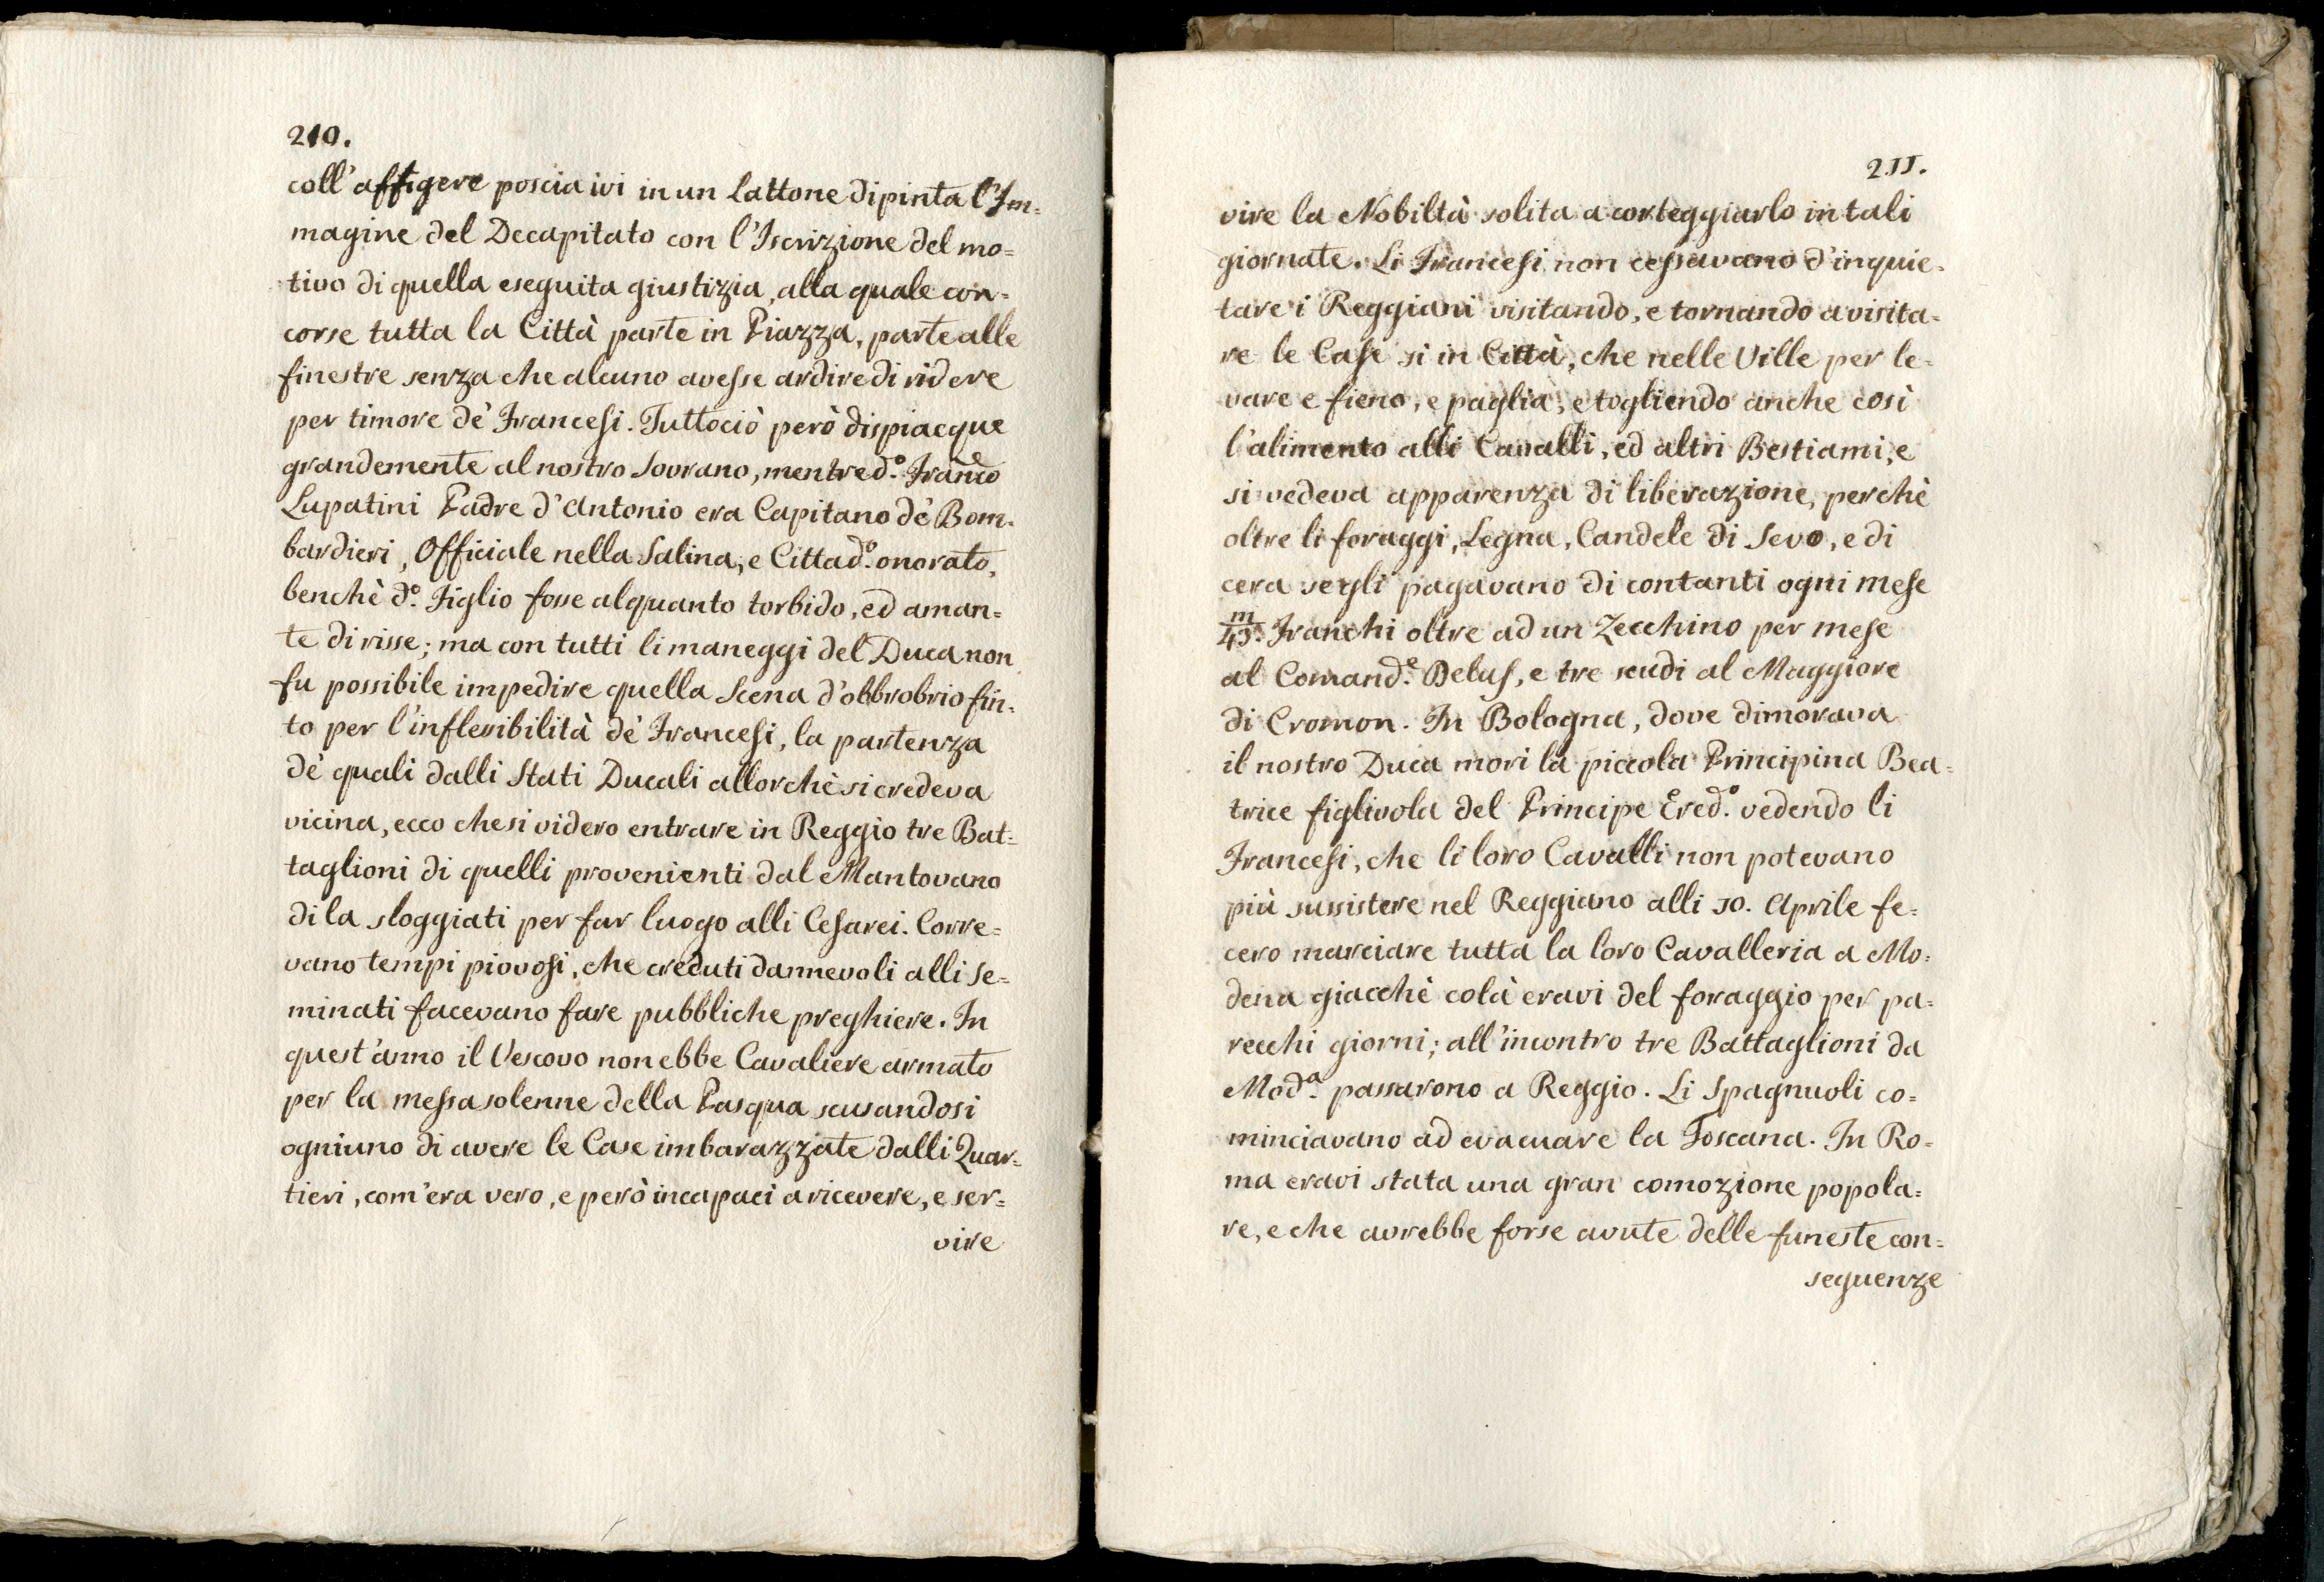 210.
coll'affigere poscia ivi in un Lattone dipinta l'Im=
magine del Decapitato con l'Iscrizione del mo=
tivo di quella eseguita giustizia, alla quale con=
corse tutta la Città parte in Piazza, parte alle
finestre senza che alcuno avesse ardire di ridere
per timore de' Francesi. Tuttociò però dispiacque
grandemente al nostro Sovrano, mentre d.º Franco
Lupatini Padre d'Antonio era Capitano de' Bom=
bardieri, Officiale nella Salina, e Cittad.º onorato,
benchè d.º Figlio fosse alquanto torbido, ed aman=
te di risse; ma con tutti li maneggi del Duca non
fu possibile impedire quella Scena d'obbrobrio fin=
to per l'inflessibilità de' Francesi, la partenza
de' quali dalli Stati Ducali allorchè si credeva
vicina, ecco che si videro entrare in Reggio tre Bat=
taglioni di quelli provenienti dal Mantovano
di la sloggiati per far luogo alli Cesarei. Corre=
vano tempi piovosi, che creduti dannevoli alli Se=
minati facevano fare pubbliche preghiere. In
quest'anno il Vescovo non ebbe Cavaliere armato
per la messa solenne della Pasqua scusandosi
ogniuno di avere le Case imbarazzate dalli Quar=
tieri, com'era vero, e però incapaci a ricevere, e ser=
vire
211.
vire la Nobiltà solita a corteggiarlo in tali
giornate. Li Francesi non cessavano d'inquie=
tare i Reggiani visitando, e tornando a visita=
re le Case si in Città, che nelle Ville per le=
vare e fieno, e paglia, e togliendo anche così
l'alimento alli Cavalli, ed altri Bestiami, e
si vedeva apparenza di liberazione, perchè
oltre li foraggi, Legna, Candele di Sevo, e di
cera segli pagavano di contanti ogni mese
m/45. Franchi oltre ad un Zecchino per mese
al Comand.e Delus, e tre scudi al Maggiore
di Cromon. In Bologna, dove dimorava
il nostro Duca morì la piccola Principina Bea=
trice figliuola del Principe Ered.º vedendo li
Francesi, che li loro Cavalli non potevano
più sussistere nel Reggiano alli 10. Aprile fe=
cero marciare tutta la loro Cavalleria a Mo=
dena giacchè colà eravi del foraggio per pa=
recchi giorni; all'incontro tre Battaglioni da
Mod.a passarono a Reggio. Li Spagnuoli co=
minciavano ad evacuare la Toscana. In Ro=
ma eravi stata una gran comozione popola=
re, e che avrebbe forse avute delle funeste con=
seguenze